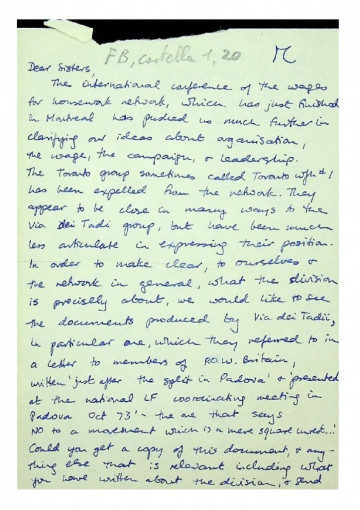 FB, cartella 1, 20
Dear Sisters,
The international conference of the wages
for housework network, which has just finished
in Montreal has pushed us much further in
clarifying our ideas about organisation,
the wage, the campaign, & leadership.
The Toronto group sometimes called Toronto wfh #1
has been expelled from the network. They
appear to be close in many ways to the
Via dei Tadi group, but have been much
less articulate in expressing their position.
In order to make clear, to ourselves &
the network in general, what the division
is precisely about, we would like to see
the documents produced by Via dei Tadi,
in particular one, which they referred to in
a letter to members of P.O.W. Britain,
written 'just after the split in Padova' & 'presented
at the national LF coordinating meeting in
Padova Oct 73' - the one that says
NO to a movement which is a mere square ...'
Could you get a copy of this document, & any-
thing else that is relevant including what
you have written about the division, & send